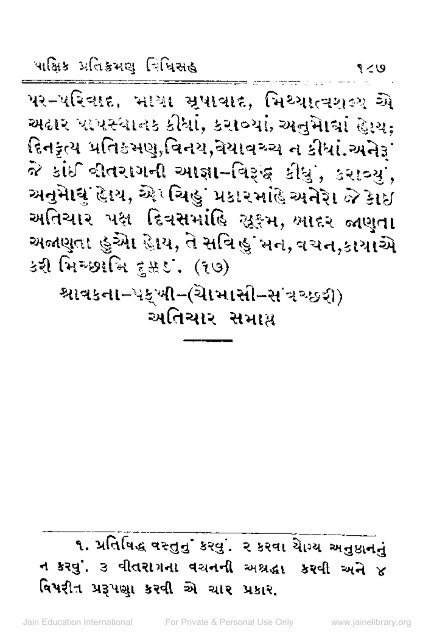 પાક્ષિક પ્રતિક્રમણ વિધિસહ ૧૮૭
પર-પરિવાદ, માયા મૃષાવાદ, મિથ્યાત્વશલ્ય એ
અઢાર પાપસ્થાનક કીધાં, કરાવ્યાં, અનુમોદ્યાં હોય;
દિનકૃત્ય પ્રતિક્રમણ,વિનય,વેયાવચ્ચ ન કીધાં.અનેરૂં
જે કાંઈ વીતરાગની આજ્ઞા-વિરૂદ્ધ કીધું, કરાવ્યું,
અનુમોદ્યું હોય, એ ચિહું પ્રકારમાંહિ અનેરો જે કોઇ
અતિચાર પક્ષ દિવસમાંહિ સૂક્ષ્મ, બાદર જાણતા
અજાણતા હુઓ હોય, તે સવિહું મન, વચન,કાયાએ
કરી મિચ્છામિ દુક્કડં. (૧૭)
શ્રાવકના-પક્ખી-(ચોમાસી-સંવચ્છરી)
અતિચાર સમાપ્ત
૧. પ્રતિષિદ્ધ વસ્તુનું કરવું. ૨ કરવા યોગ્ય અનુષ્ઠાનનું
ન કરવું. ૩ વીતરાગના વચનની અશ્રદ્ધા કરવી અને ૪
વિપરીત પ્રરૂપણા કરવી એ ચાર પ્રકાર.
Jain Education International For Private & Personal Use Only www.jainelibrary.org